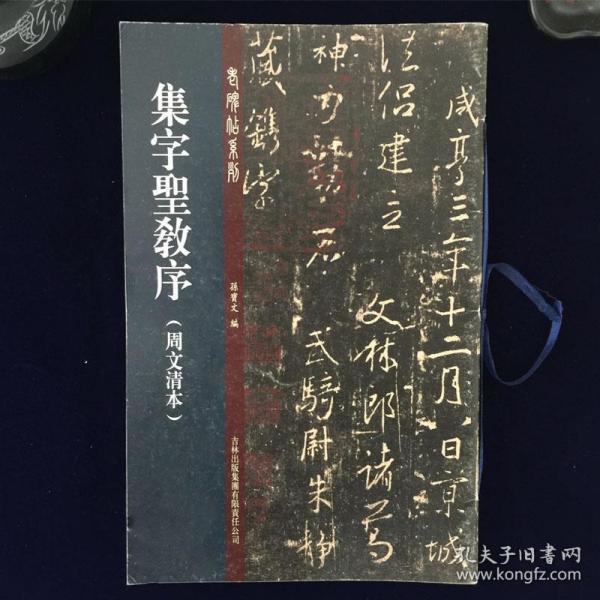 咸亨三年十二月八日京城
法侶建立 文林郎諸葛
神力勒石 武騎尉朱静
藏鐫字
老碑帖系列
孫寶文 編
吉林出版集團有限責任公司
集字聖教序（周文清本）
孔夫子旧书网
www.kongfz.com